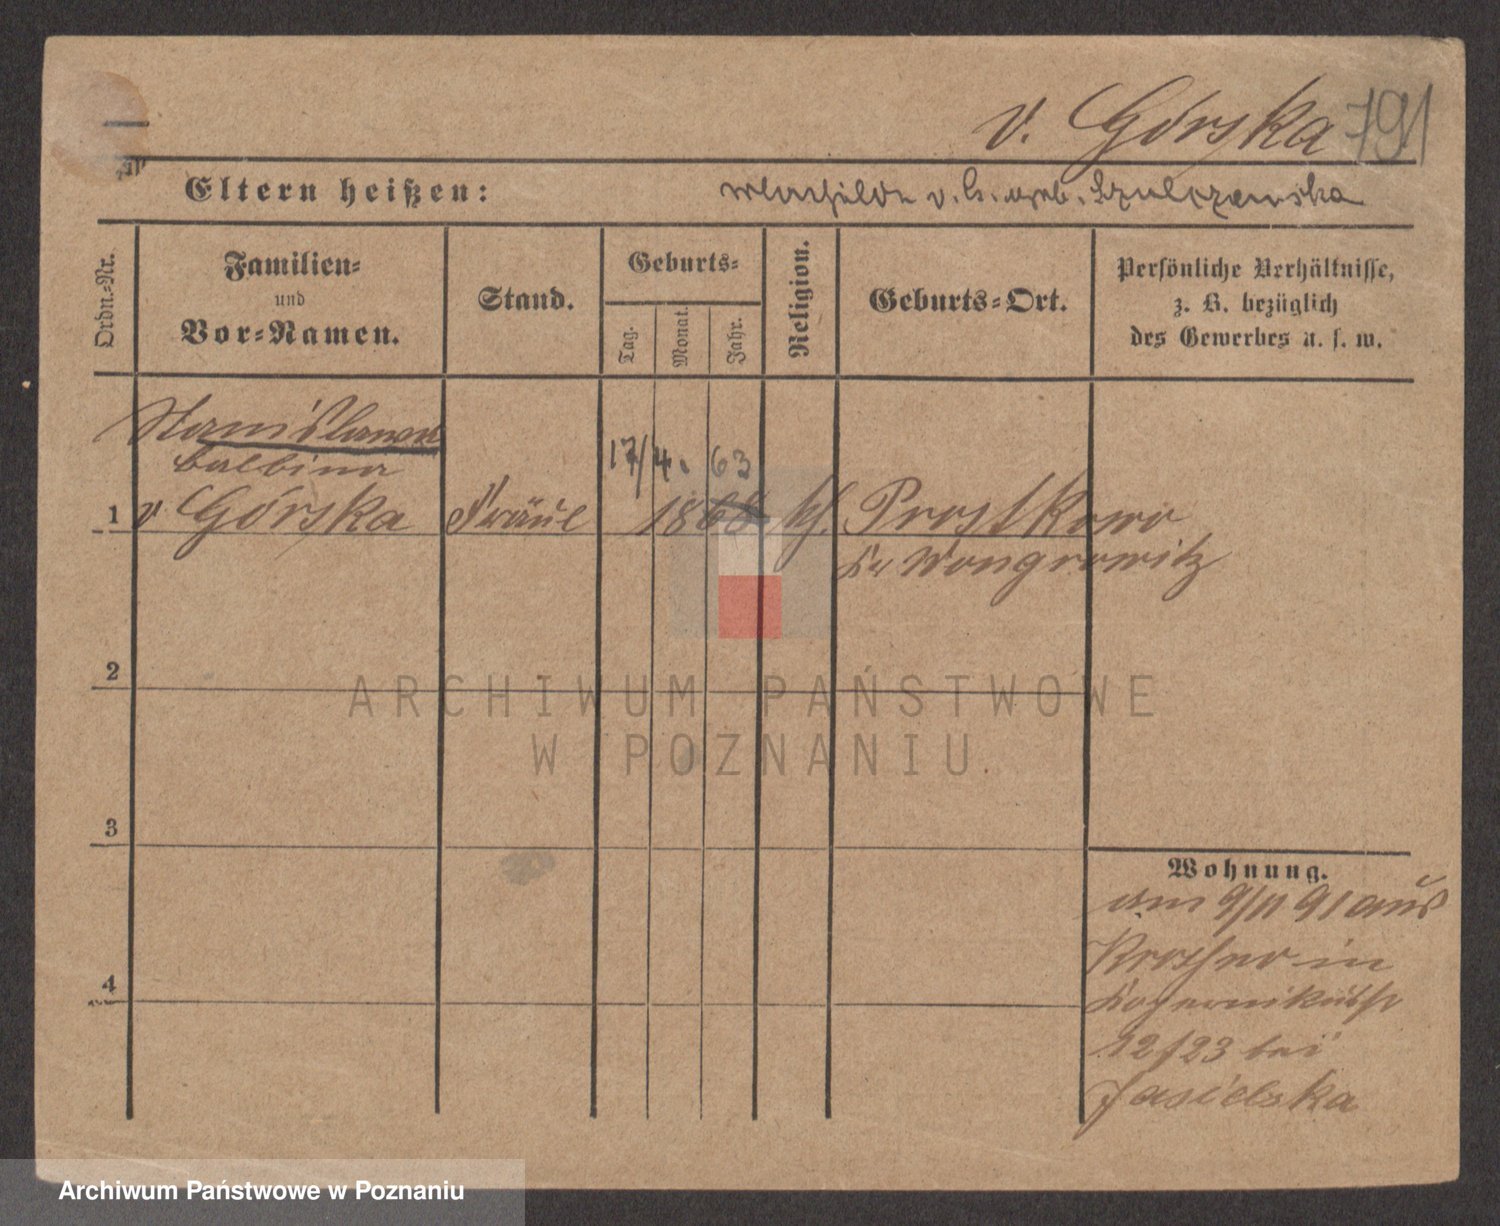 v. Górska 791
Eltern heißen: Mathilde v. G. geb. Szulczewska
Ordn.-Nr.
Familien-
und
Vor-Namen.
Stand.
Geburts-
Tag.
Monat.
Jahr.
Religion.
Geburts-Ort.
Persönliche Verhältnisse,
z. B. bezüglich
des Gewerbes u. s. w.
Stanislawa
Balbina
17/4. 63
1 v Górska Fräul 1868 kf. Prostkowo
Kr Wongrowitz
2
3
4
Wohnung.
am 9/11 91 aus
in
12/23 bei
Jasielska
ARCHIWUM PAŃSTWOWE
W POZNANIU
Archiwum Państwowe w Poznaniu